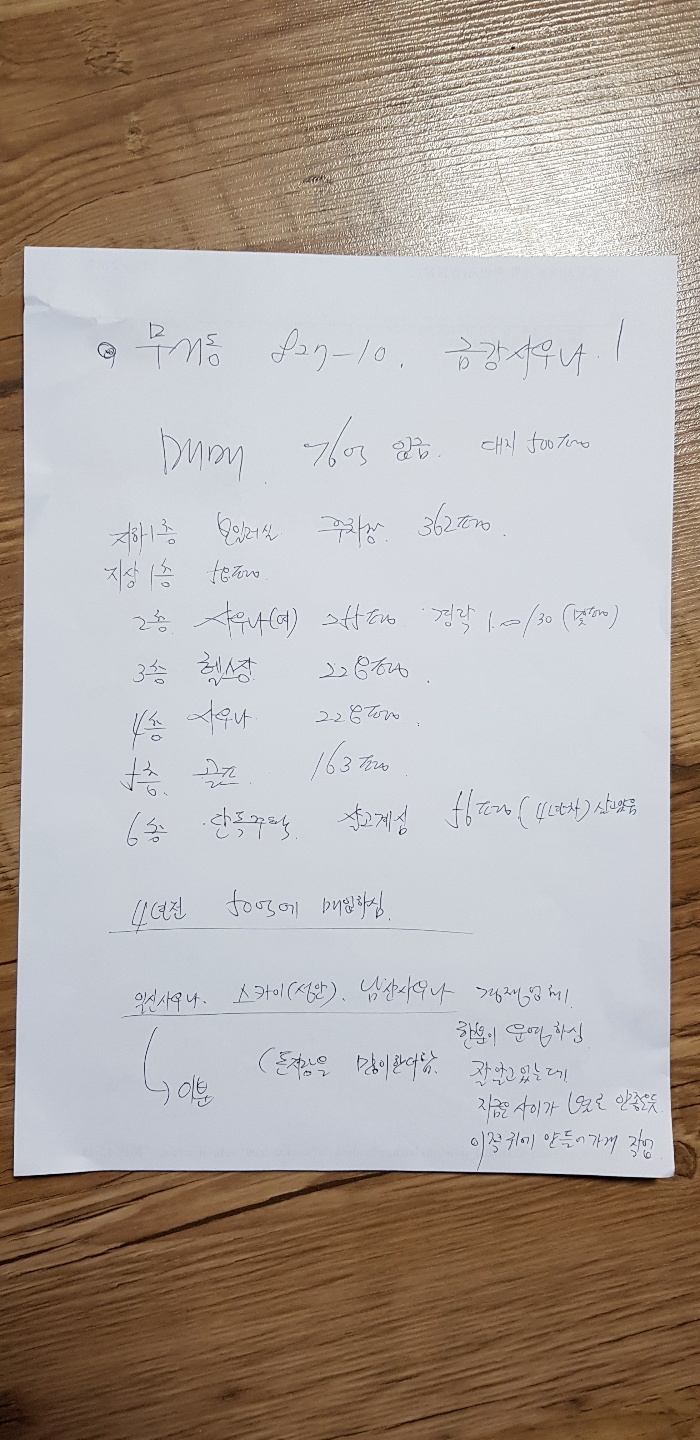 무거동 827-10. 금강사우나.
매매 76억 입금. 대지 500평
지하1층 보일러실 주차장 362평.
지상1층 58평
2층 사우나(여) 255평 경락 1.00/30
3층 헬스장 228평.
4층 사우나 228평.
5층. 골프 163평.
6층 단독주택. 살고계심 56평 (4년차) 살고있음
4년전 50억에 매입하심.
사우나. 스카이(성안). 남산사우나 경쟁업체.
한분이 운영하심
(돈자랑은 많이한다함. 잘알고있는데
→ 이분 지금은 사이가 별로 안좋은듯
이쪽 귀에 안들어가게 작업